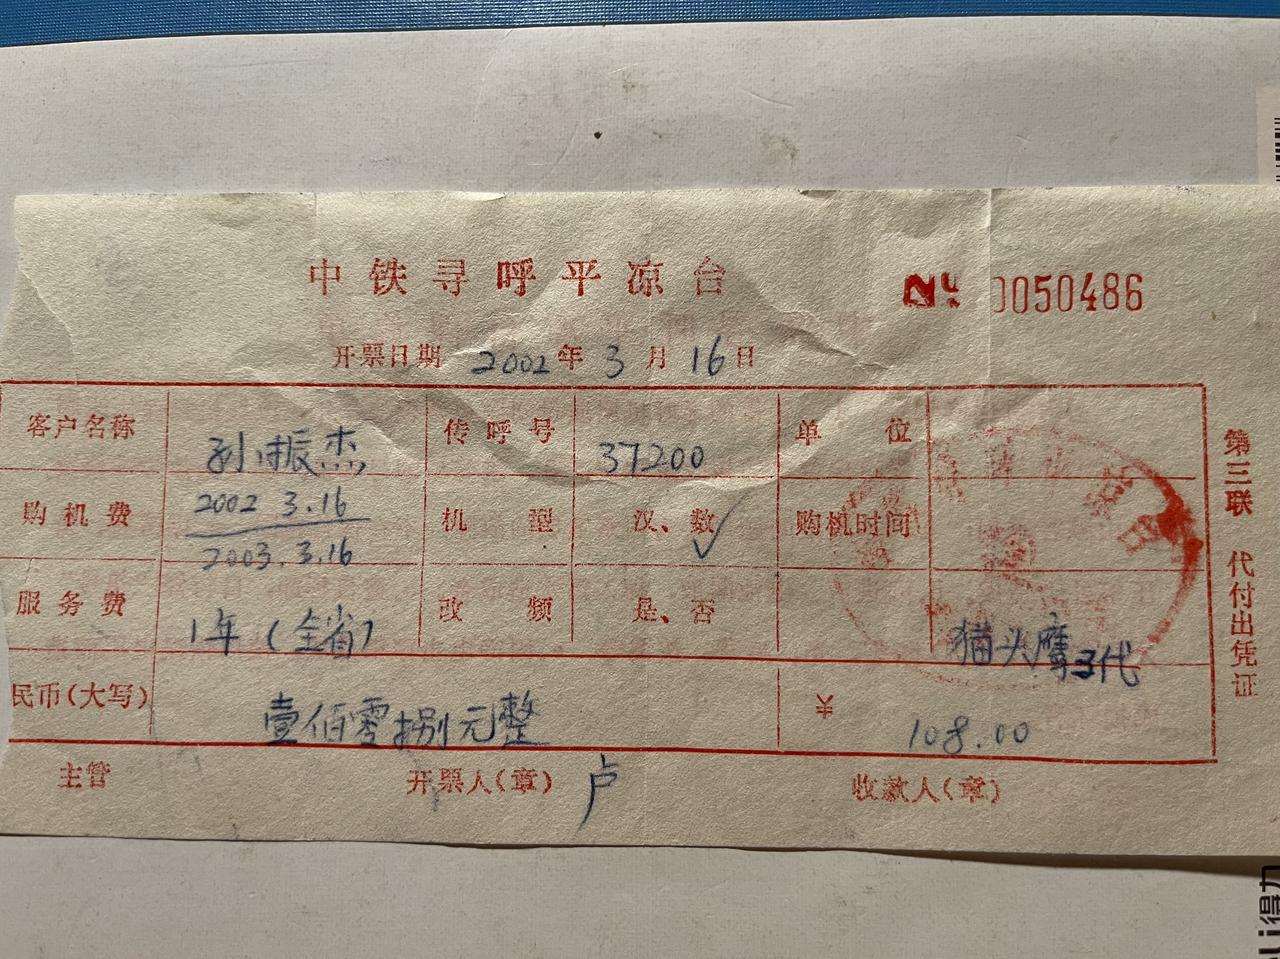 中铁寻呼平凉台 No 0050486
开票日期 2002年3月16日
客户名称 孙振杰 传呼号 37200 单位
购机费 2002 3.16 机型 汉、数 购机时间
2003.3.16
服务费 1年(全省) 改频 是、否 猫头鹰3代
民币(大写) 壹佰零捌元整 ¥ 108.00
主管 开票人(章) 卢 收款人(章)
第三联 代付出凭证
得力